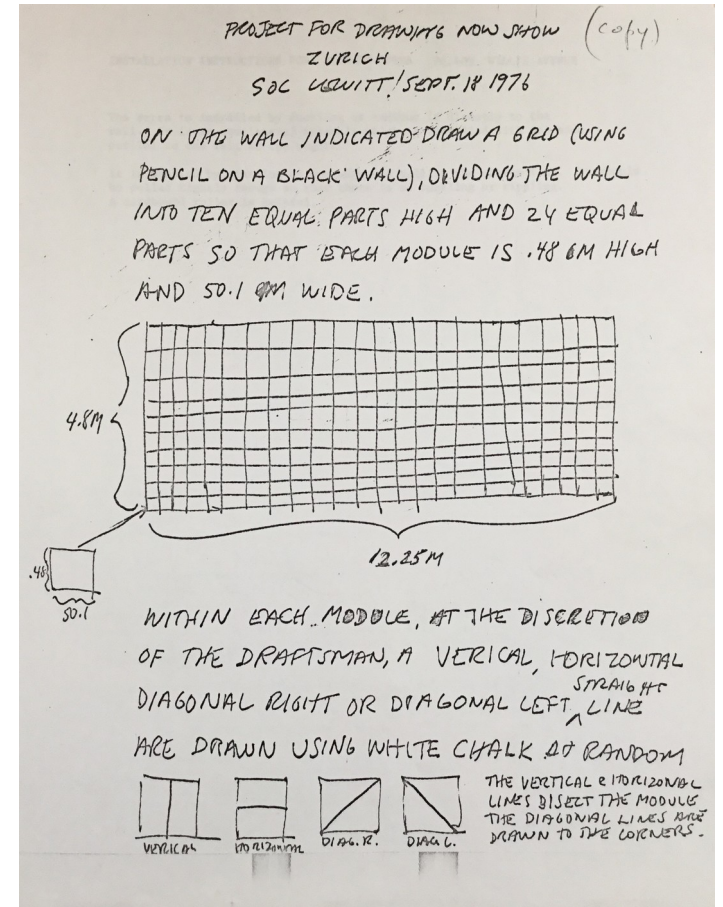 PROJECT FOR DRAWING NOW SHOW
(copy)
ZURICH
SOL LEWITT/SEPT. 18 1976
ON THE WALL INDICATED DRAW A GRID (USING
PENCIL ON A BLACK WALL), DIVIDING THE WALL
INTO TEN EQUAL PARTS HIGH AND 24 EQUAL
PARTS SO THAT EACH MODULE IS .48 CM HIGH
AND 50.1 CM WIDE.
4.8M
12.25M
.48
50.1
WITHIN EACH MODULE, AT THE DISCRETION
OF THE DRAFTSMAN, A VERICAL, HORIZONTAL
DIAGONAL RIGHT OR DIAGONAL LEFT STRAIGHT LINE
ARE DRAWN USING WHITE CHALK AT RANDOM
THE VERTICAL & HORIZONAL
LINES BISECT THE MODULE
THE DIAGONAL LINES ARE
DRAWN TO THE CORNERS.
VERICAL HORIZONTAL DIAG. R. DIAG L.